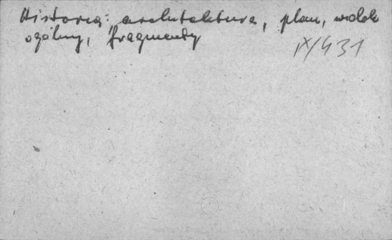 Historia: architektura, plan, widok
ogólny, fragmenty
IX/431